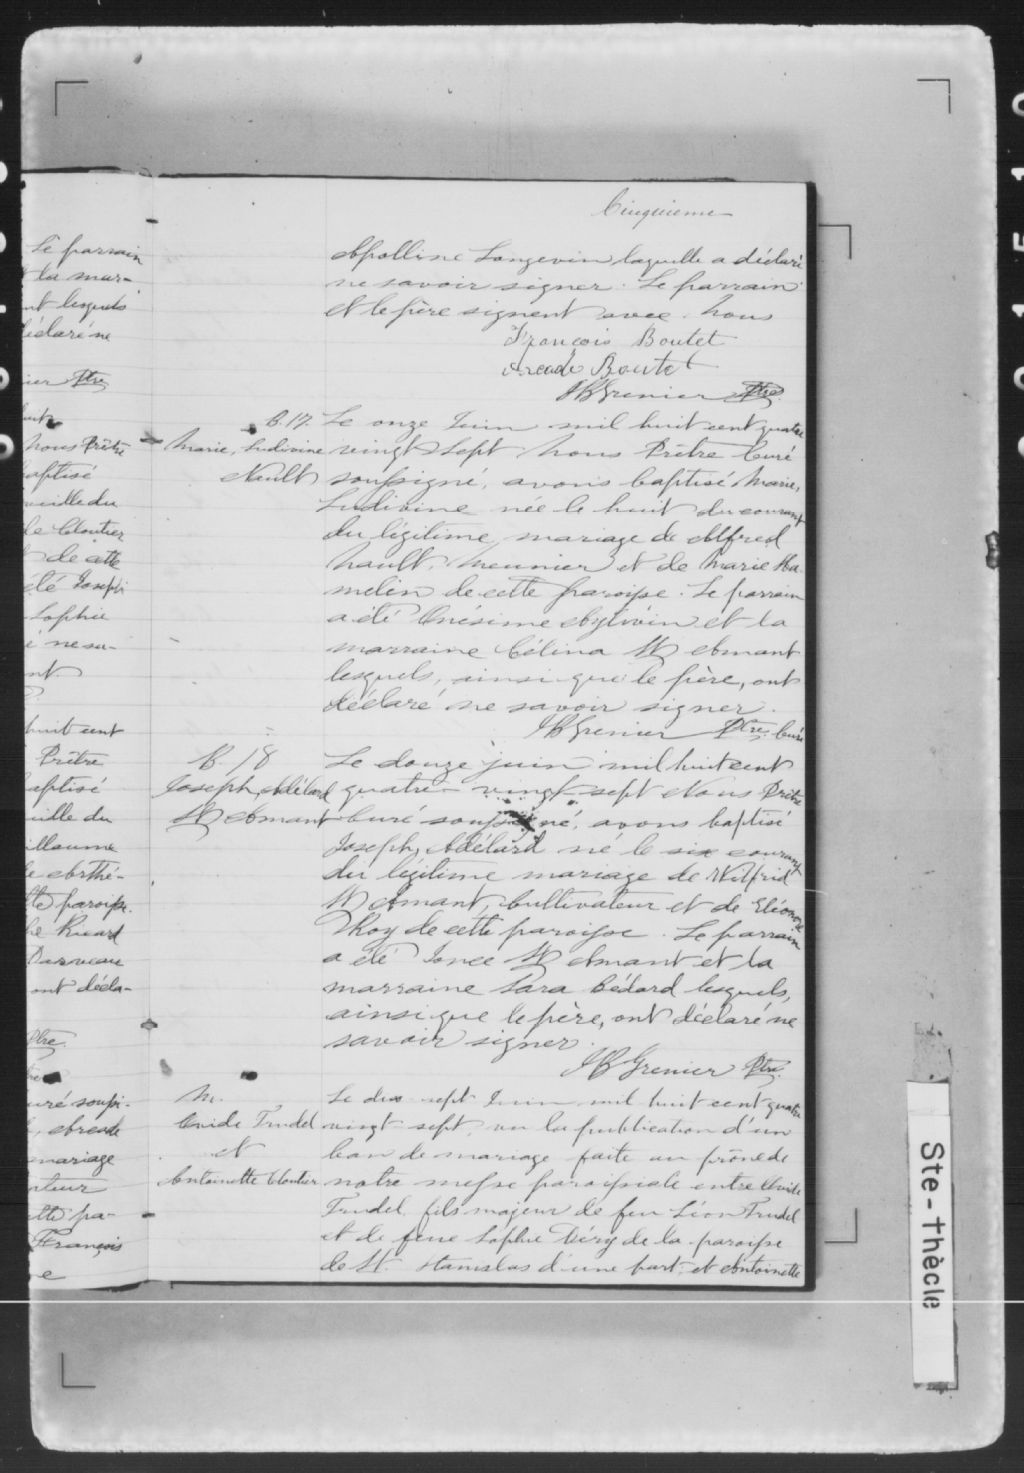 Cinquieme
Apolline Langevin laquelle a déclaré
ne savoir signer. Le parrain
et le père signent avec Nous
François Boutet
Arcade Boutet
JBGrenier Ptre
B. 17. Le onze Juin mil huit cent quatre
Marie, Ludivine vingt Sept Nous Prêtre Curé
Nault soussigné, avons baptisé Marie,
Ludivine née le huit du courant
du légitime mariage de Alfred
Nault, Meunier et de Marie Ha
melin de cette paroisse. Le parrain
a été Onésime et la
marraine Célina St Amant
lesquels, ainsi que le père, ont
déclaré ne savoir signer.
JBGrenier Ptre. Curé
B. 18 Le douze juin mil huit cent
Joseph, Adélard quatre-vingt-sept Nous Prêtre
St Amant Curé soussigné, avons baptisé
Joseph, Adélard né le six courant
du légitime mariage de Wilfrid
St Amant, Cultivateur et de Eléonore
Roy de cette paroisse. Le parrain
a été St Amant et la
marraine Sara Bédard lesquels,
ainsi que le père, ont déclaré ne
savoir signer.
JBGrenier Ptre.
M. Le dix sept Juin mil huit cent quatre
Ovide Trudel vingt-sept, vu la publication d'un
et ban de mariage faite au prône de
Antoinette Cloutier notre messe paroissiale entre Ovide
Trudel, fils majeur de feu Léon Trudel
et de feue Sophie Déry de la paroisse
de St. Stanislas d'une part, et Antoinette
Le parrain
la mar-
nt lesquels
déclaré ne
ier Ptre
huit
Nous Prêtre
baptisé
veille du
de Cloutier
de cette
été Joseph
Sophie
é ne sa-
nt.
huit cent
Prêtre
baptisé
veille du
illaume
tte paroisse.
Ricard
Darveau
ont décla-
Ptre.
uré soussi-
, Arcade
mariage
ateur
tte pa-
François
e
Ste-Thècle